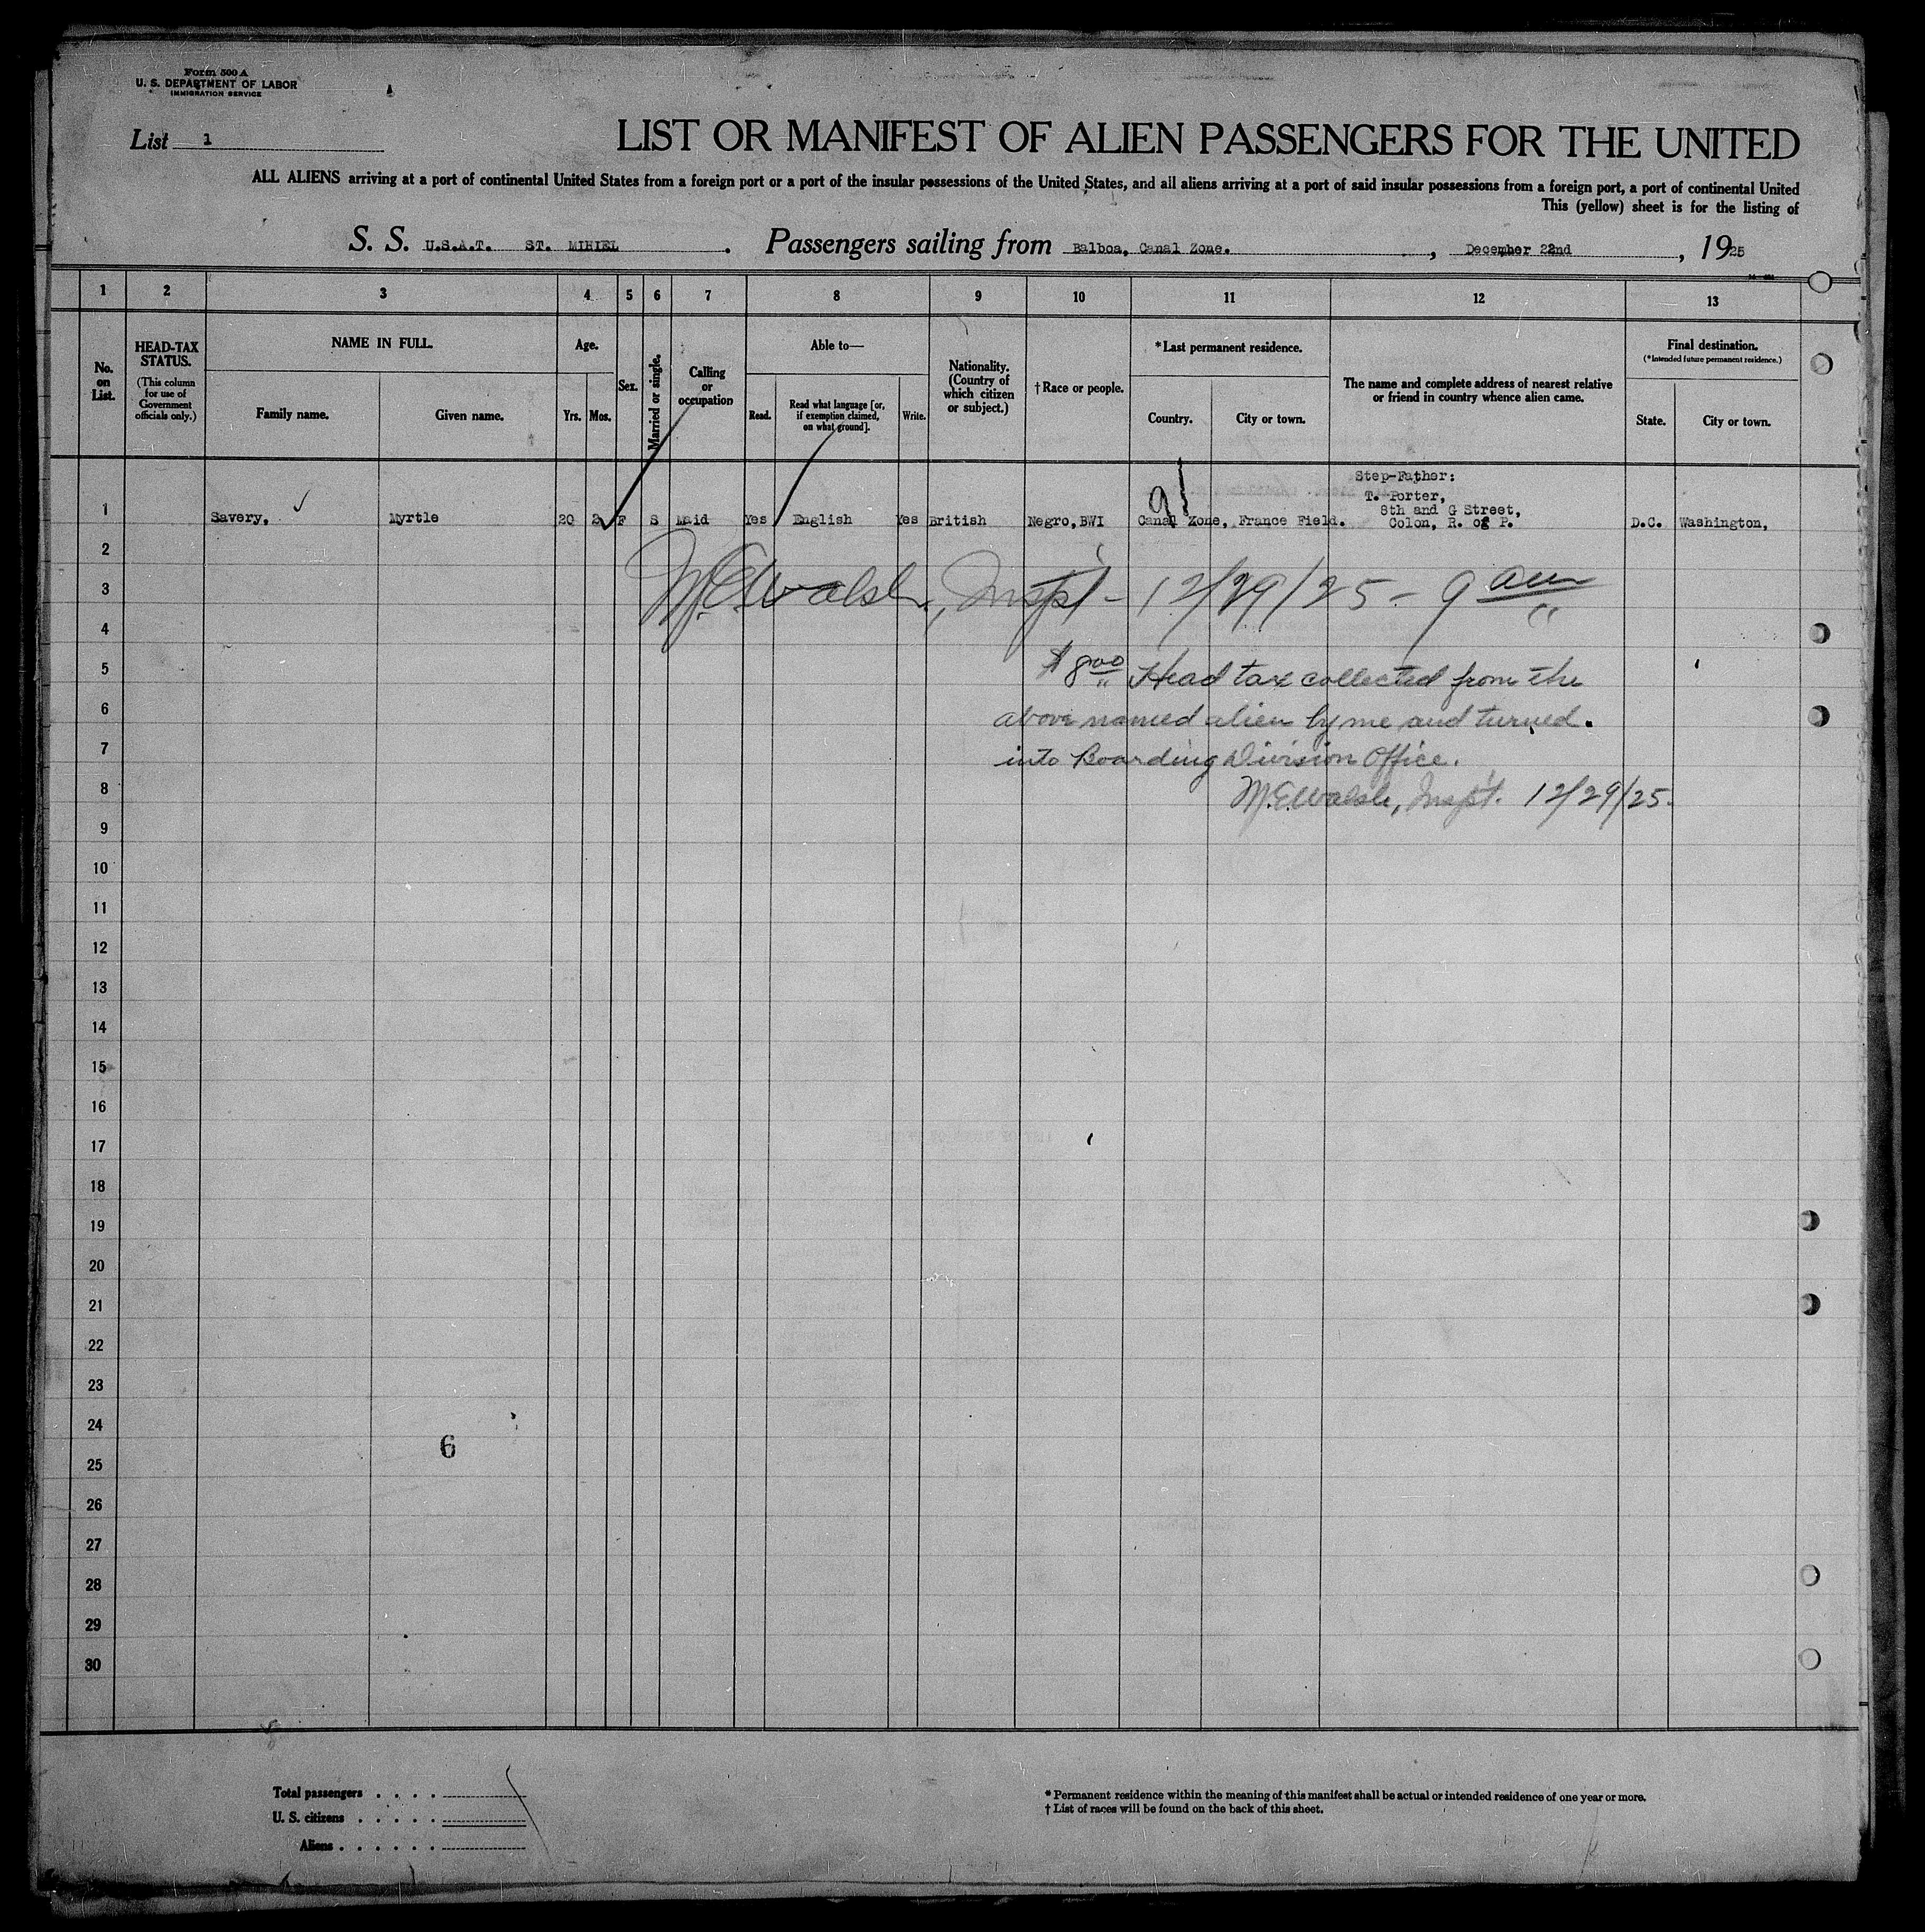 Form 500 A
U. S. DEPARTMENT OF LABOR
IMMIGRATION SERVICE
List 1
LIST OR MANIFEST OF ALIEN PASSENGERS FOR THE UNITED
ALL ALIENS arriving at a port of continental United States from a foreign port or a port of the insular possessions of the United States, and all aliens arriving at a port of said insular possessions from a foreign port, a port of continental United
This (yellow) sheet is for the listing of
S. S. U.S.A.T. ST. MIHIEL . Passengers sailing from Balboa, Canal Zone. , December 22nd , 1925
1 2 3 4 5 6 7 8 9 10 11 12 13
No. on List.
HEAD-TAX STATUS.
(This column for use of Government officials only.)
NAME IN FULL.
Family name.
Given name.
Age.
Yrs.
Mos.
Sex.
Married or single.
Calling or occupation
Able to—
Read.
Read what language [or, if exemption claimed, on what ground].
Write.
Nationality. (Country of which citizen or subject.)
†Race or people.
*Last permanent residence.
Country.
City or town.
The name and complete address of nearest relative or friend in country whence alien came.
Final destination.
(*Intended future permanent residence.)
State.
City or town.
Step-Father:
T. Porter,
8th and G Street,
1 Savery, Myrtle 20 2 F S Maid Yes English Yes British Negro, BWI Canal Zone, France Field. Colon, R. of P. D.C. Washington,
2
3 M.E.Walsh, Inspt - 12/29/25 - 9 am
4
5 $8.00 Head tax collected from the
6 above named alien by me and turned.
7 into Boarding Division Office.
8 M.E.Walsh, Inspt. 12/29/25.
9
10
11
12
13
14
15
16
17
18
19
20
21
22
23
24
6
25
26
27
28
29
30
Total passengers . . . .
U. S. citizens . . . . .
Aliens . . . . . .
* Permanent residence within the meaning of this manifest shall be actual or intended residence of one year or more.
† List of races will be found on the back of this sheet.